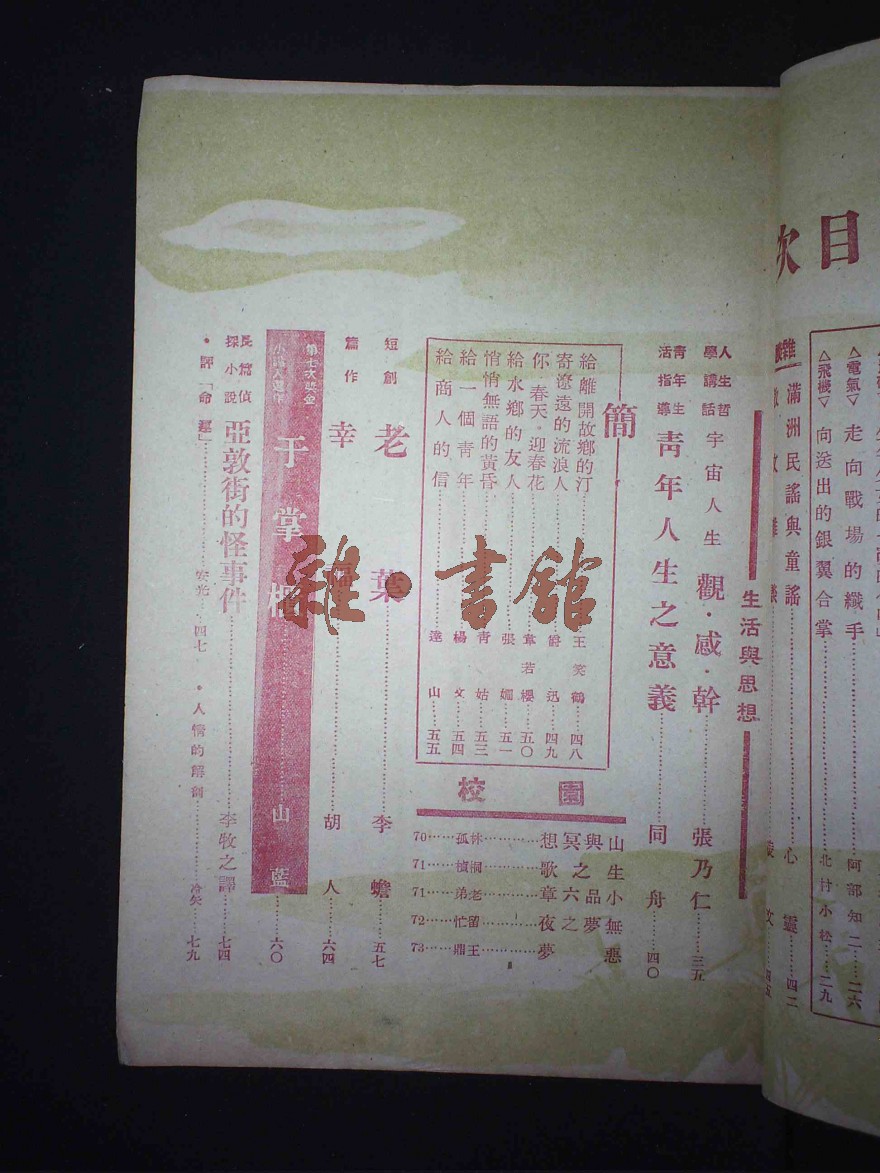 目次
△飛機▽ 向送出的銀翼合掌………北村小松…二九
△電氣▽ 走向戰場的織手………阿部知二…二六
滿洲民謠與童謠………心靈…四二
生活與思想
人生哲學講話 宇宙人生 觀·感·幹………張乃仁…三五
青年生活指導 青年人生之意義………同舟…四〇
簡
給離開故鄉的汀………王笑鶴 四八
寄遼遠的流浪人………爵迅 四九
你·春天·迎春花………韋若櫻 五〇
給水鄉的友人………張嫺 五一
悄悄無語的黃昏………青姑 五三
給一個青年………楊文 五四
給商人的信………達山 五五
校園
山與冥想………林孤……70
生之歌………桐楨……71
小品六章………老弟……71
無夢之夜………留忙……72
惡夢………王鼎……73
短篇創作
老葉………李蟾…五七
幸福………胡人…六四
第七次獎金
于掌櫃………山藍…六〇
長篇偵探小說 亞敦街的怪事件………李牧之譯…七四
·評「命運」………安光…四七
·人情的解剖………冷矢…七九
雜·書館